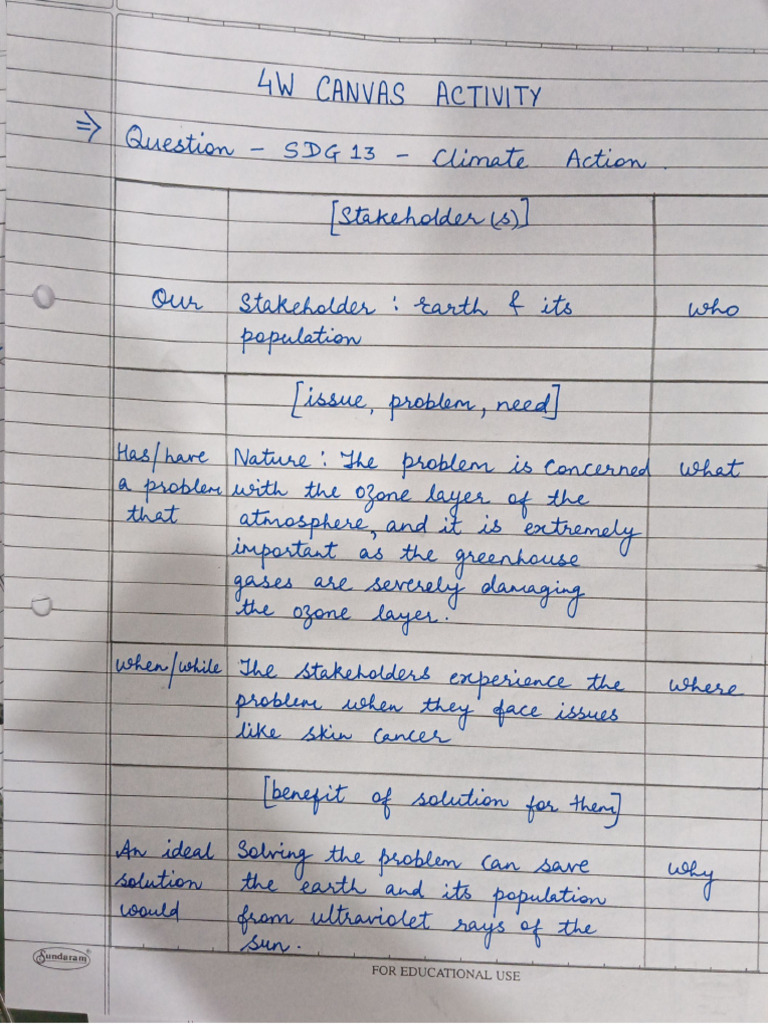 4W CANVAS ACTIVITY
⇒ Question - SDG 13 - Climate Action.
[Stakeholder(s)]
Our Stakeholder : Earth & its who
population
[issue, problem, need]
Has/have Nature : The problem is concerned what
a problem with the ozone layer of the
that atmosphere, and it is extremely
important as the greenhouse
gases are severely damaging
the ozone layer.
when/while The stakeholders experience the where
problem when they face issues
like skin cancer
[benefit of solution for them]
An ideal Solving the problem can save why
solution the earth and its population
would from ultraviolet rays of the
sun.
Sundaram
FOR EDUCATIONAL USE